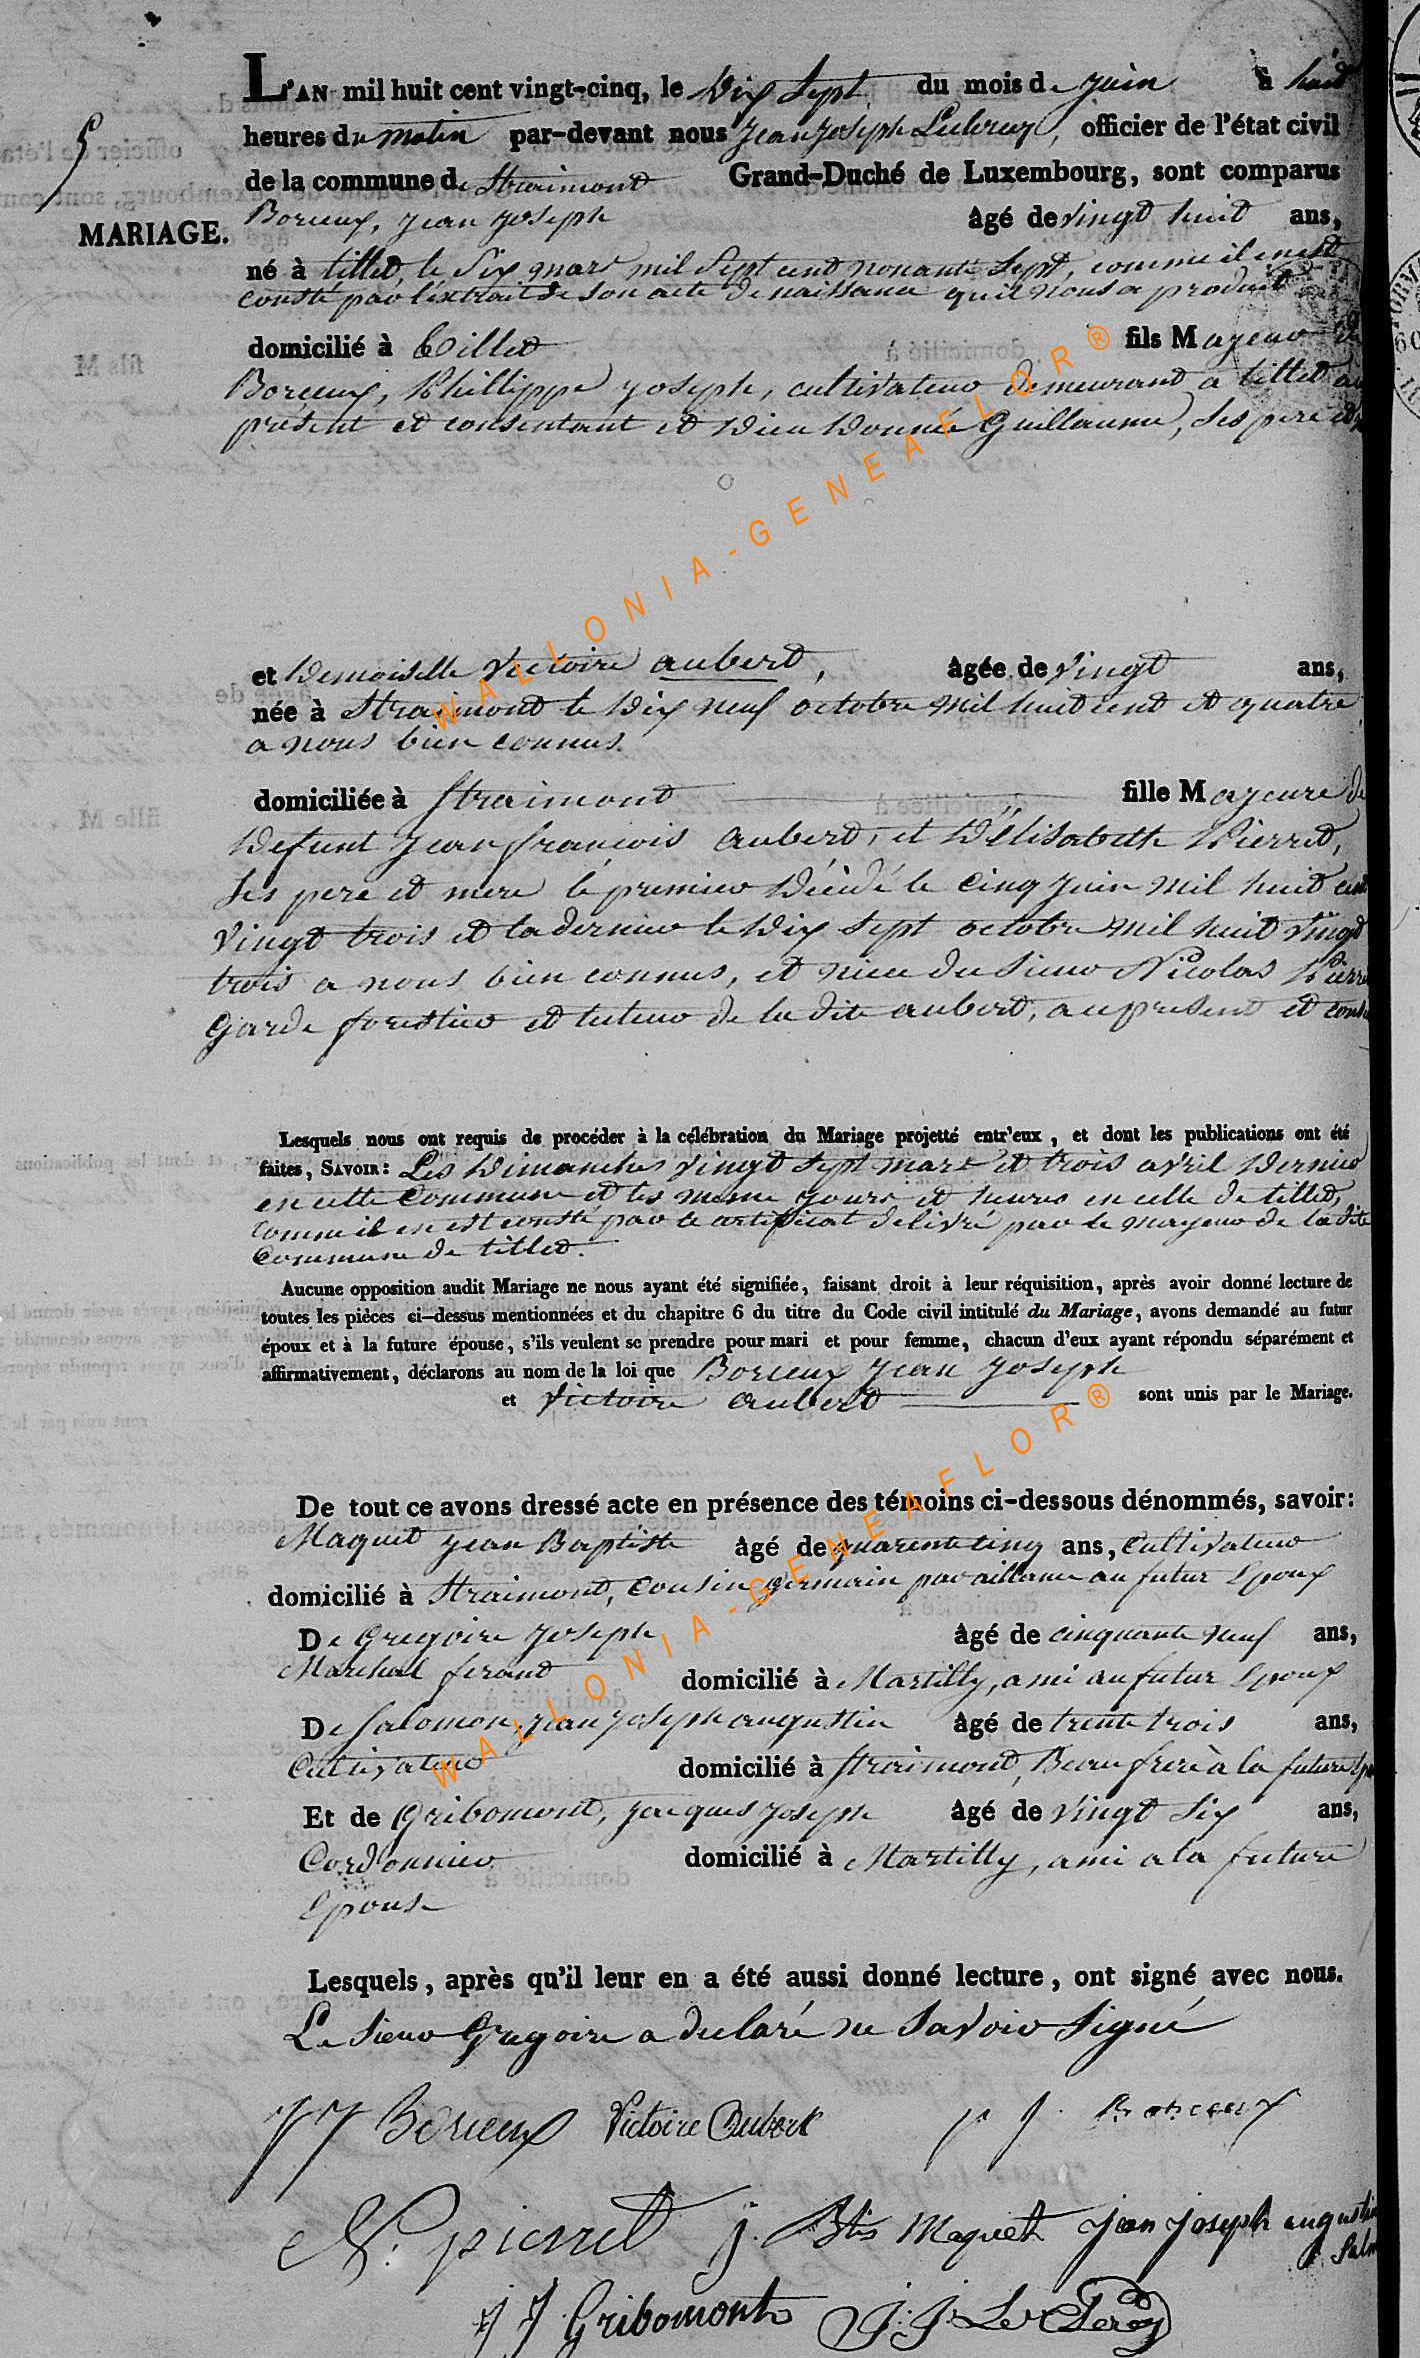 L'AN mil huit cent vingt-cinq, le Dix Sept du mois de juin à huit
5
heures du matin par-devant nous jean joseph Leclereq, officier de l'état civil
de la commune de Straimont Grand-Duché de Luxembourg, sont comparus
MARIAGE.
Borceux, jean joseph âgé de vingt huit ans,
né à tillet, le Six mars mil Sept cent nonante Sept, comme il en est
consté par l'extrait de son acte de naissance qu'il nous a produit
domicilié à Tillet fils Majeur de
Borceux, Phillippe joseph, cultivateur demeurant a tillet
présent et consentant et Dieu Donnée Guillaume, ses pere et
et Demoiselle Victoire aubert, âgée de vingt ans,
née à Straimont le Dix neuf octobre mil huit cent et quatre
a nous bien connus.
domiciliée à Straimont fille Majeure de
Defunt jean françois aubert, et D'élisabeth Pierret,
Ses pere et mere le premier Décédé le cinq juin mil huit cent
vingt trois et la dernier le Dix Sept octobre mil huit vingt
trois a nous bien connus, et niece du Sieur Nicolas
Garde forestier et tuteur de la dite aubert, au present et
Lesquels nous ont requis de procéder à la célébration du Mariage projetté entr'eux, et dont les publications ont été
faites, SAVOIR: Les Dimanches vingt sept mars et trois avril Dernier
en cette Commune et les meme jours et heures en celle de tillet,
comme il en est consté par le certificat delivré par le mayeur de la dite
Commune de tillet.
Aucune opposition audit Mariage ne nous ayant été signifiée, faisant droit à leur réquisition, après avoir donné lecture de
toutes les pièces ci-dessus mentionnées et du chapitre 6 du titre du Code civil intitulé du Mariage, avons demandé au futur
époux et à la future épouse, s'ils veulent se prendre pour mari et pour femme, chacun d'eux ayant répondu séparément et
affirmativement, déclarons au nom de la loi que Borceux jean joseph
et Victoire aubert sont unis par le Mariage.
De tout ce avons dressé acte en présence des témoins ci-dessous dénommés, savoir:
Maquet jean Baptiste âgé de quarente cinq ans, Cultivateur
domicilié à Straimont, Cousin germain par aillance au futur Epoux
De Gregoire joseph âgé de cinquante neuf ans,
Marchal ferant domicilié à Martilly, ami au futur Epoux
De Salomon, jean joseph augustin âgé de trente trois ans,
Cultivateur domicilié à Straimont, Beau frere à la future
Et de Gribomont, jacques joseph âgé de vingt Six ans,
Cordonnier domicilié à Martilly, ami a la future
Epouse
Lesquels, après qu'il leur en a été aussi donné lecture, ont signé avec nous.
Le Sieur Gregoire a declaré ne Savoir Signé
JJ Borceux Victoire Aubert p j. Borceux
N. pierret j. Btis Maquet jean joseph augustin
JJ Gribomont J. J. Le Clereq
WALLONIA-GENEAFLOR®
WALLONIA-GENEAFLOR®